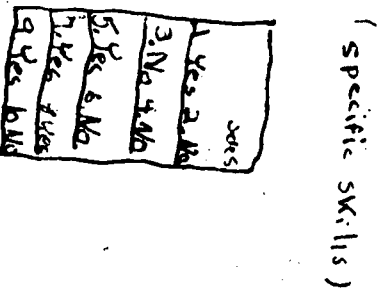 (specific skills)
1 yes 2.No
3.No 4.No
5.Yes 6 No
7.Yes 8 Yes
9 Yes 10 No